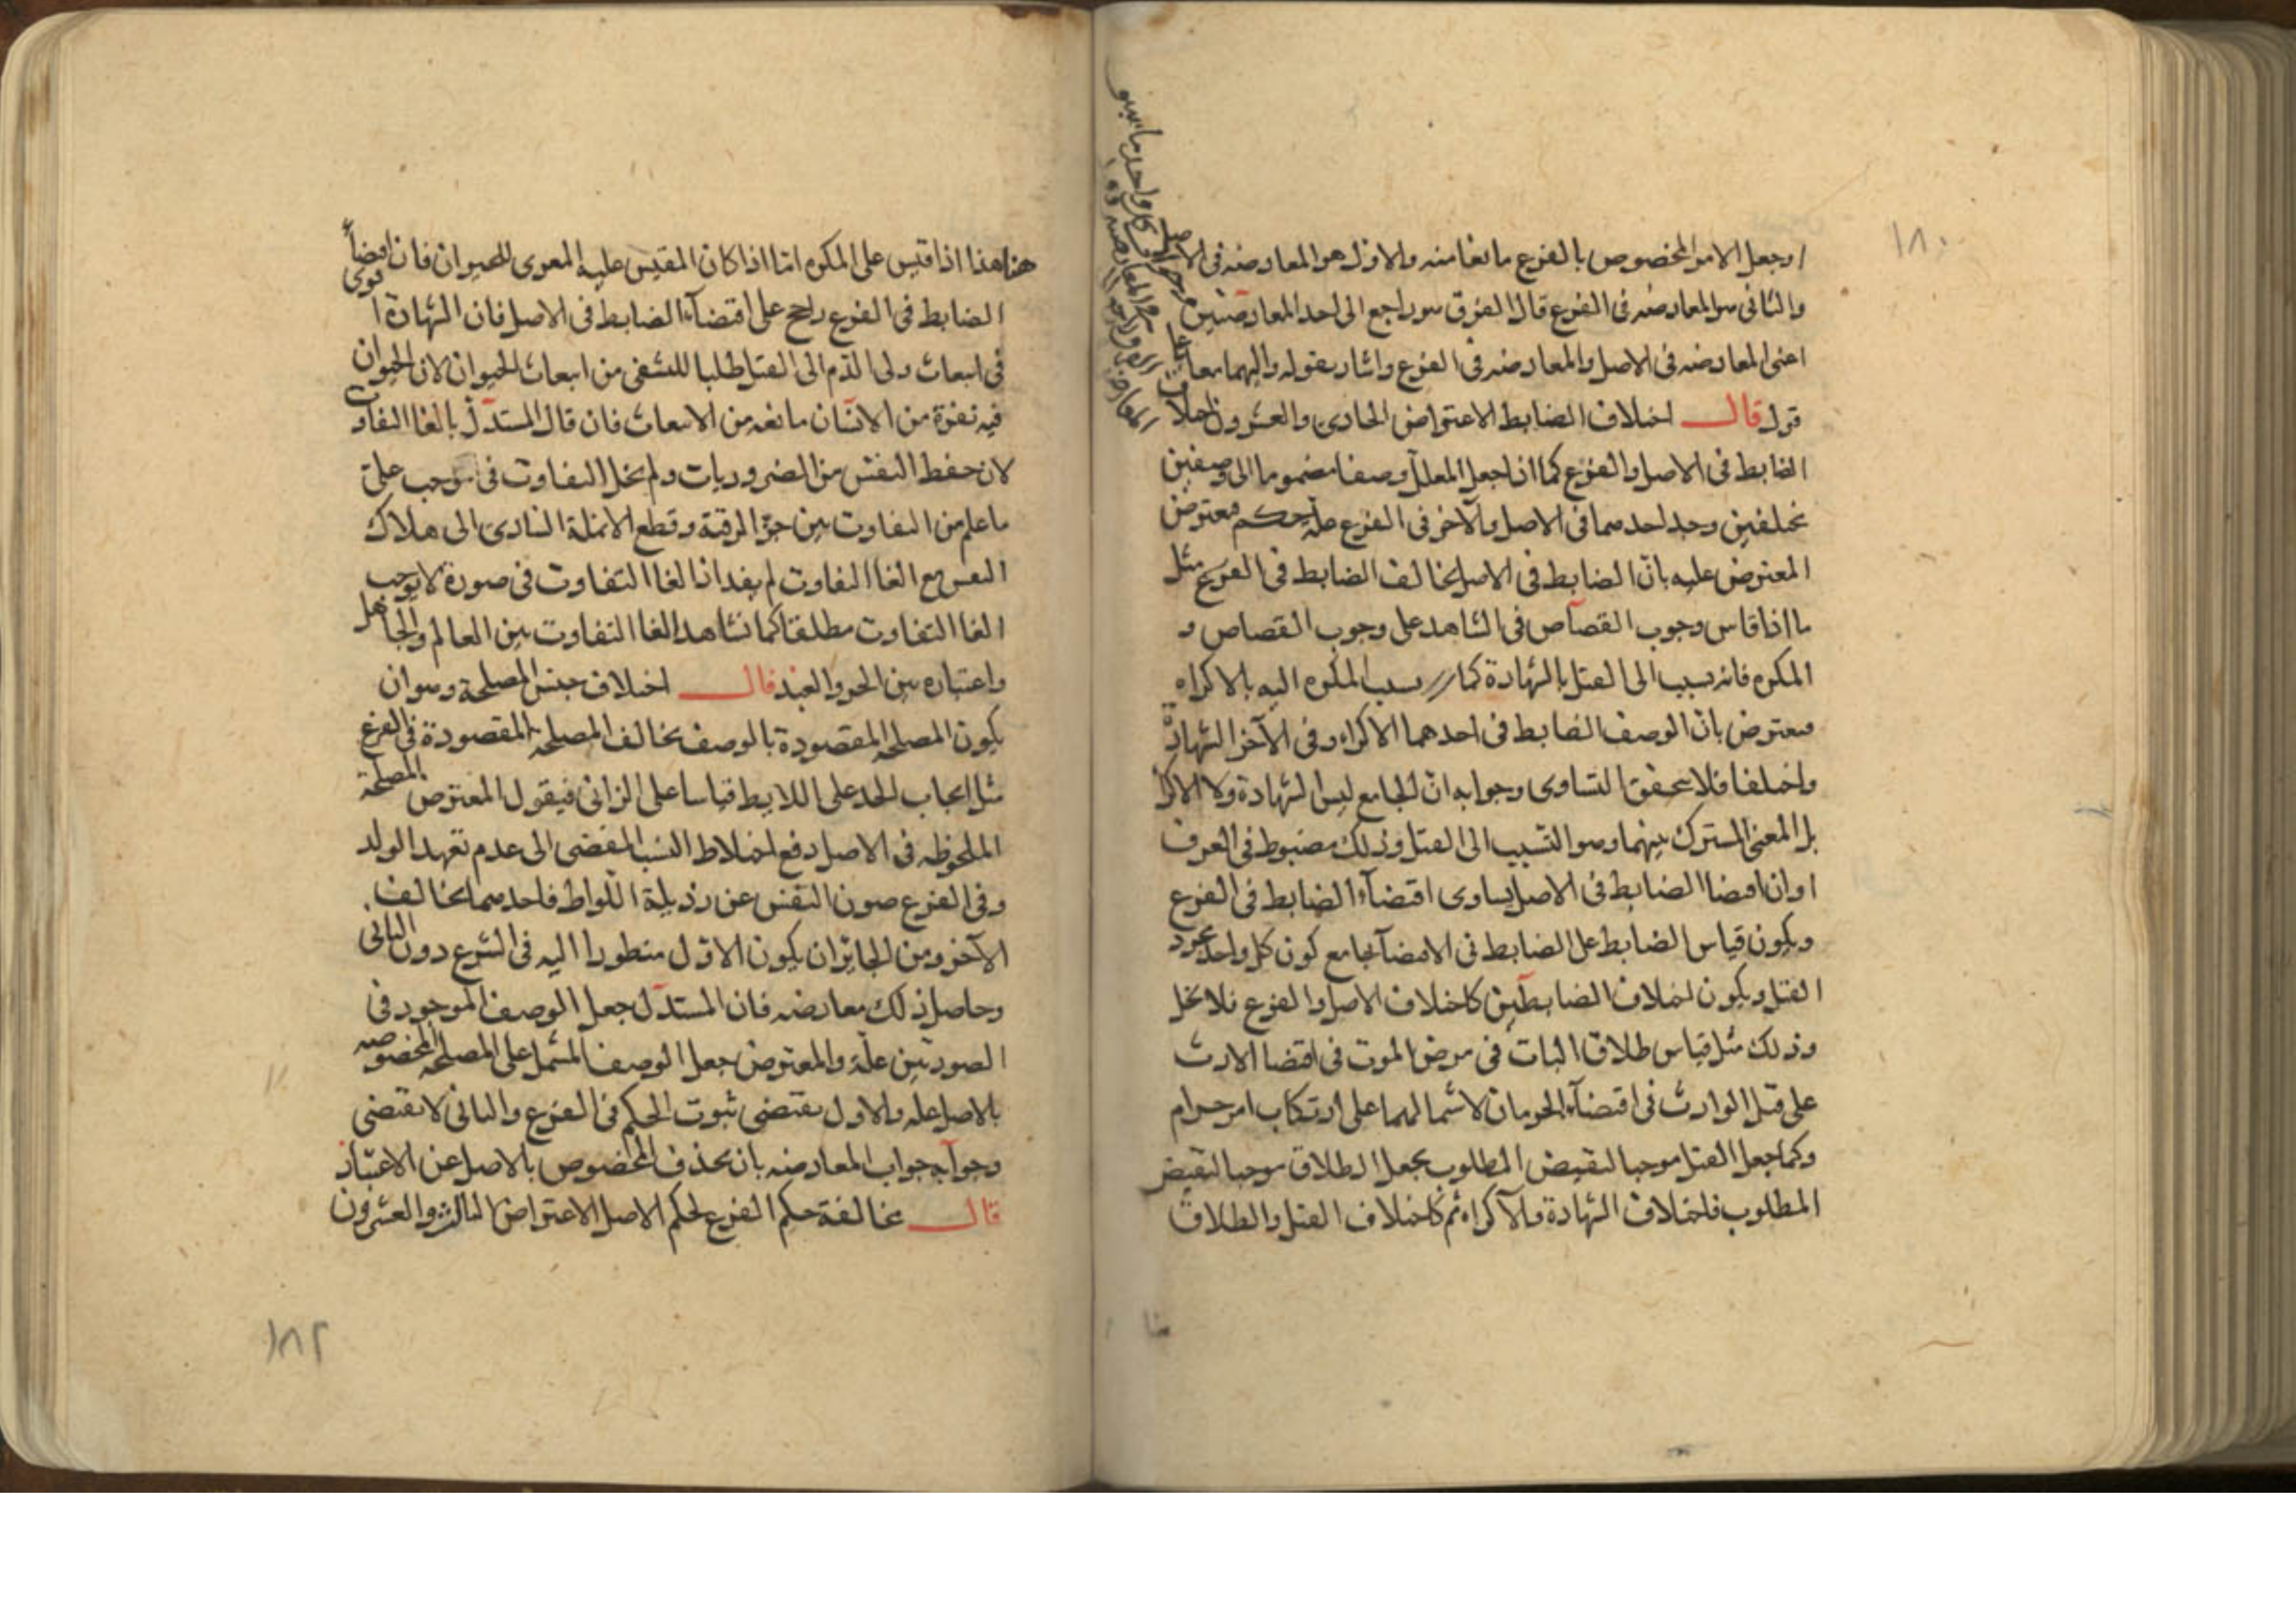 ١٨٠
او جعل الامر المخصوص بالفرع مانعا منه والاول هو المعارضه فى الاصل
والثانى هو المعارضه فى الفرع قال الفرق هو راجع الى احد المعارضتين
اعنى المعارضه فى الاصل والمعارضه فى الفرع واشار بقوله واليهما معا
قول قال اختلاف الضابط الاعتراض الحادى والعشرون اختلاف
الضابط فى الاصل والفرع كما اذا جعل المعلل وصفا مضموما الى وصفين
مختلفين وجد احدهما فى الاصل والآخر فى الفرع علة حكم فيعترض
المعترض عليه بان الضابط فى الاصل يخالف الضابط فى الفرع مثل
ما اذا قاس وجوب القصاص فى الشاهد على وجوب القصاص و
المكره فانه يسبب الى القتل بالشهادة كما يسبب المكره اليه بالاكراه
فيعترض بان الوصف الضابط فى احدهما الاكراه وفى الآخر الشهادة
واختلفا فلا يتحقق التساوى وجوابه ان الجامع ليس الشهادة ولا الاكراه
بل المعنى المشترك بينهما وهو التسبيب الى القتل وذلك مضبوط فى العرف
او ان افضا الضابط فى الاصل يساوى اقتضاء الضابط فى الفرع
ويكون قياس الضابط على الضابط فى الافضآ بجامع كون كل واحد
القتل ويكون اختلاف الضابطين كاختلاف الاصل والفرع فلا يخل
وذلك مثل قياس طلاق البات فى مرض الموت فى اقتضا الارث
على قتل الوارث فى اقتضآء الحرمان لاشتمالهما على ارتكاب امر حرام
وكما جعل القتل موجبا لنقيض المطلوب يجعل الطلاق موجبا لنقيض
المطلوب فاختلاف الشهادة والاكراه ثم كاختلاف القتل والطلاق
هنا
هنا هذا اذا قيس على المكره اما اذا كان المقيس عليه المغرى للحيوان فان افضآء
الضابط فى الفرع راجح على اقتضآء الضابط فى الاصل فان الشهادة اقوى
فى انبعاث ولى الدم الى القتل طلبا للتشفى من انبعاث الحيوان لان الحيوان
فيه نفرة من الانسان مانعه من الانبعاث فان قال المستدل بالغا التفاوت
لان حفظ النفس من الضروريات ولم يخل التفاوت فى موجب على
ما علم من التفاوت بين حز الرقبة وقطع الانملة السارى الى هلاك
النفس مع الغا التفاوت لم يفد اذ الغا التفاوت فى صورة لا يوجب
الغا التفاوت مطلقا كما نشاهد الغا التفاوت بين العالم والجاهل
واعتباره بين الحر والعبد قال اختلاف جنس المصلحة وهو ان
يكون المصلحه المقصودة بالوصف يخالف المصلحه المقصودة فى الفرع
مثل ايجاب الحد على اللايط قياسا على الزانى فيقول المعترض المصلحة
الملحوظه فى الاصل دفع اختلاط النسب المفضى الى عدم تعهد الولد
وفى الفرع صون النفس عن رذيلة اللواط فاحدهما يخالف
الآخر ومن الجايز ان يكون الاول منظورا اليه فى الشرع دون الثانى
وحاصل ذلك معارضه فان المستدل جعل الوصف الموجود فى
الصورتين علة والمعترض جعل الوصف المشتمل على المصلحه المخصوصه
بالاصل عله والاول يقتضى ثبوت الحكم فى الفرع والثانى لا يقتضى
وجوابه جواب المعارضه بان يحذف المخصوص بالاصل عن الاعتبار
قال مخالفة حكم الفرع لحكم الاصل الاعتراض الثالث والعشرون
١٨٢